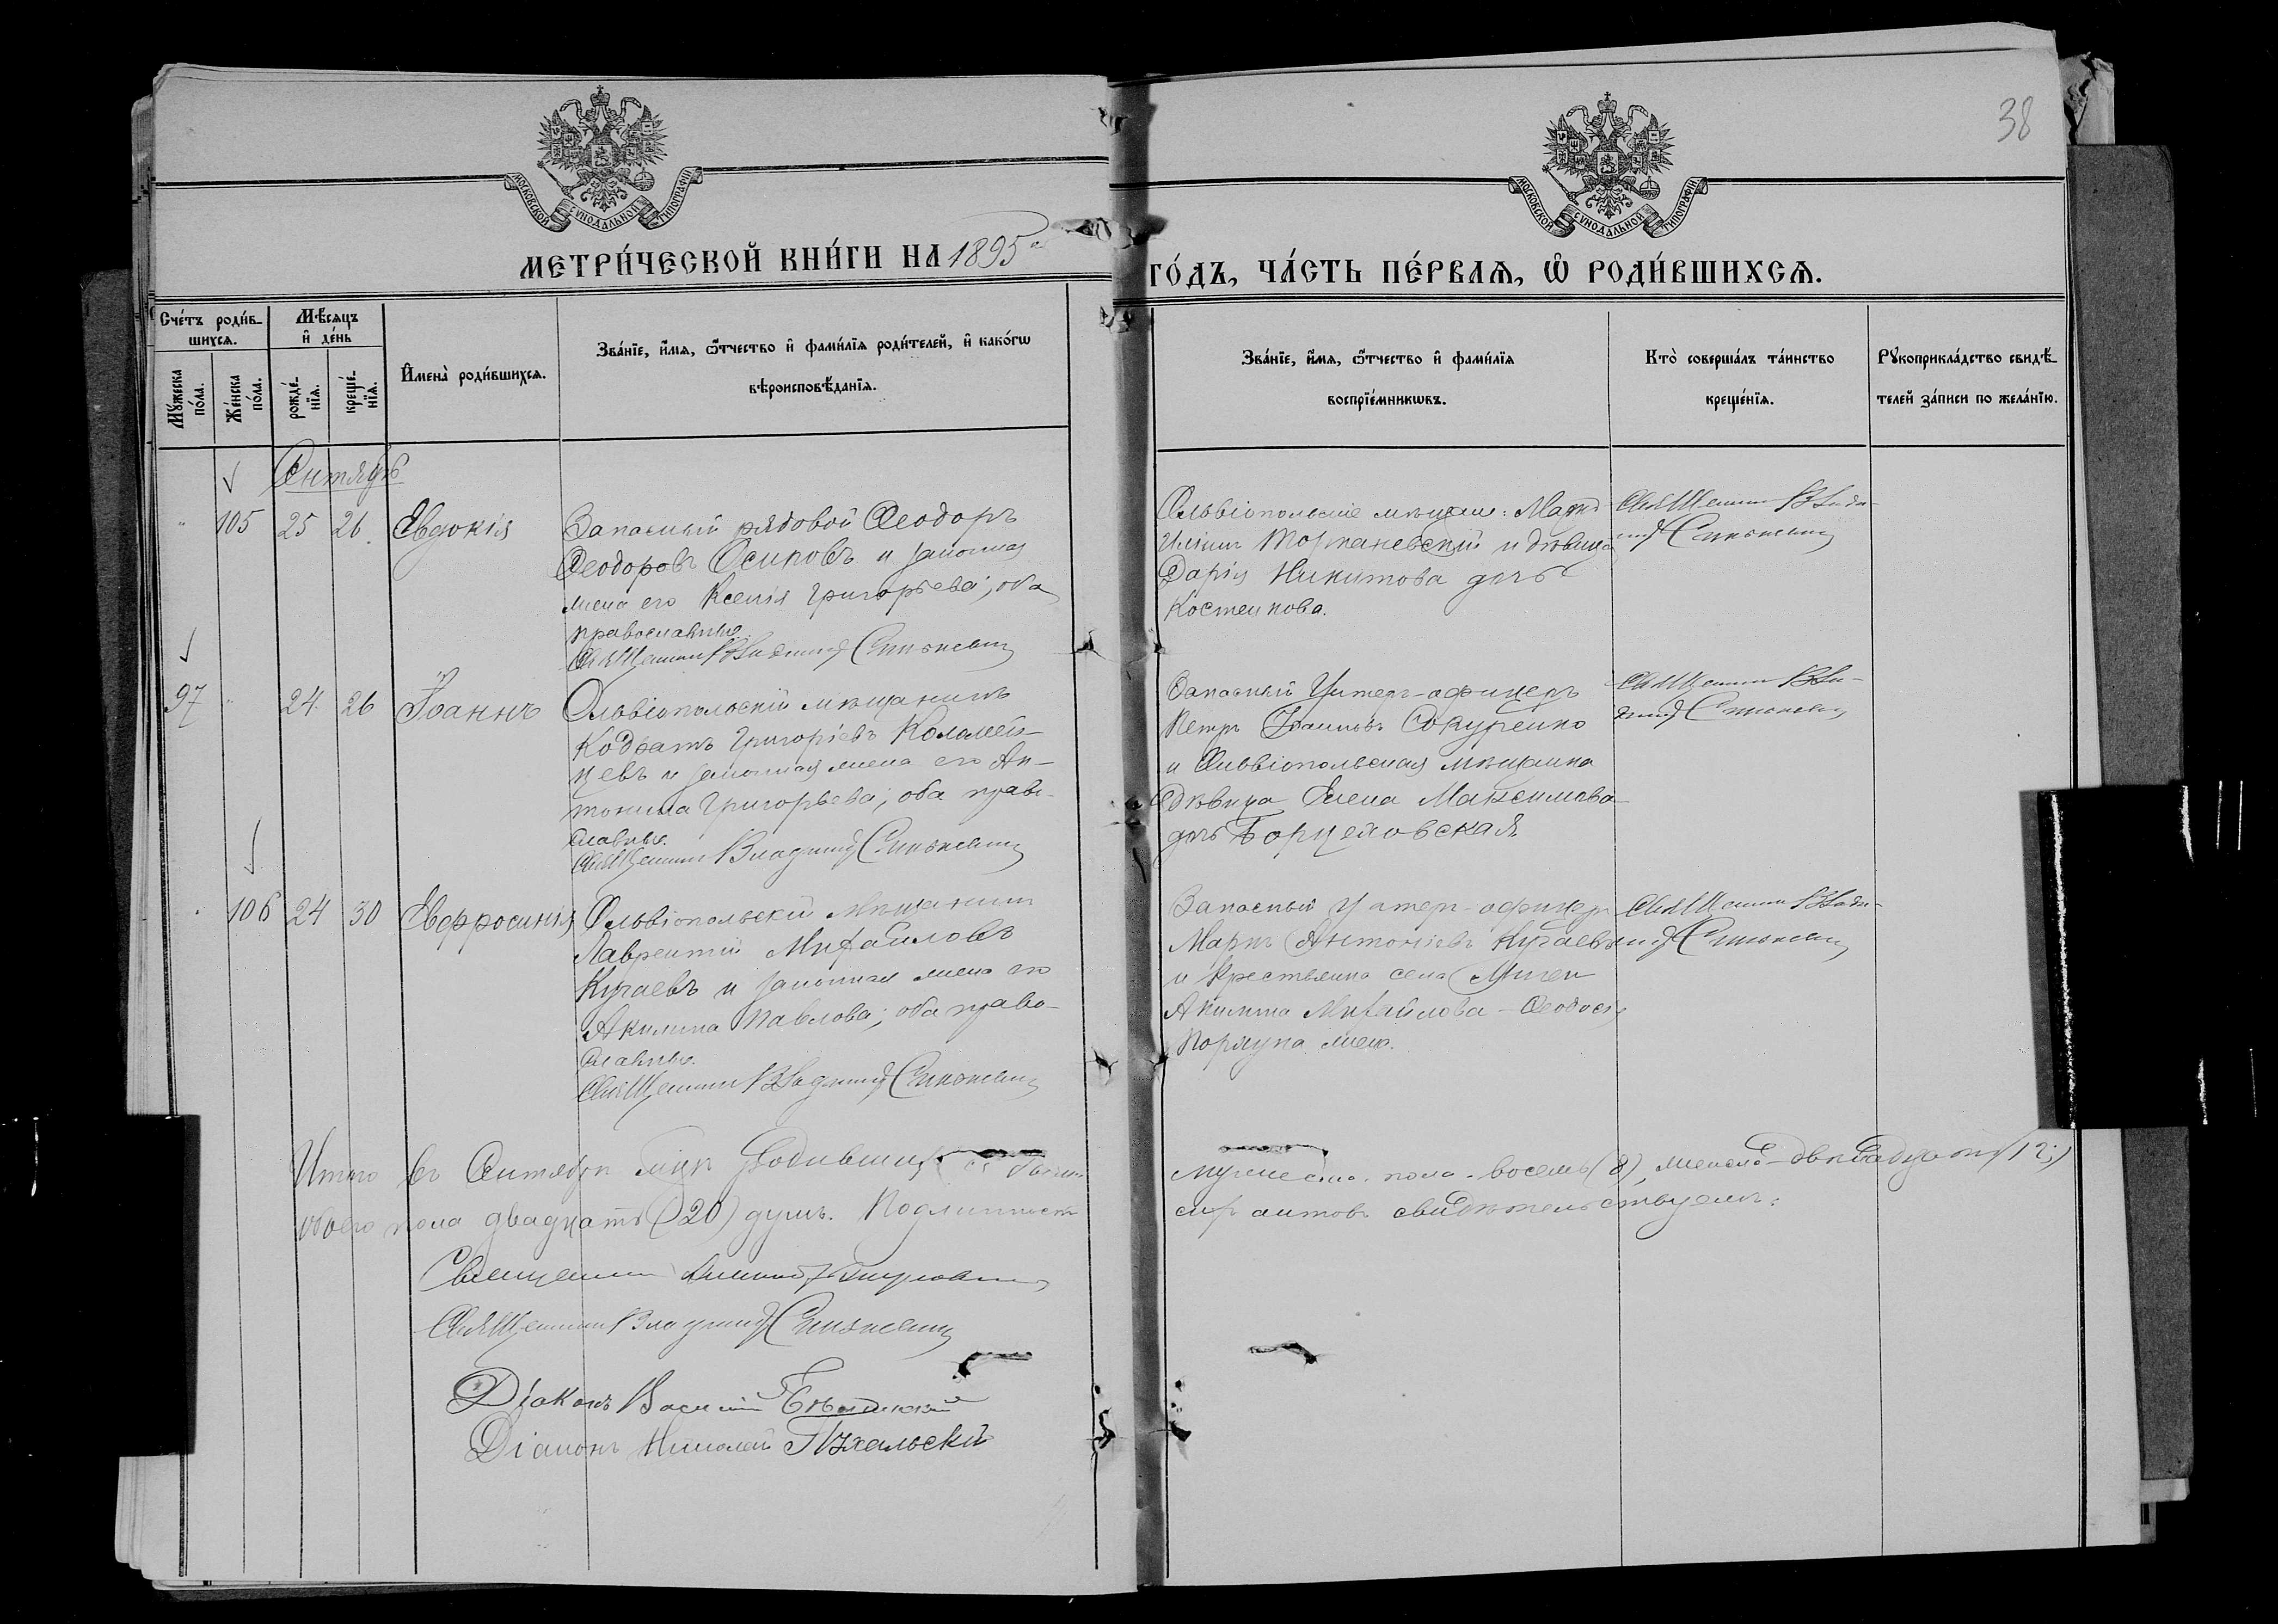 38
МОСКОВСКОЙ СѴНОДАЛЬНОЙ ТИПОГРАФІИ
МОСКОВСКОЙ СѴНОДАЛЬНОЙ ТИПОГРАФІИ.
МЕТРИ́ЧЕСКОЙ КНИ́ГИ НА 1895
ГО́ДЪ, ЧА́СТЬ ПЕ́РВАѦ, Ѡ҆ РОДИ́ВШИХСѦ.
Сче́тъ роди́в-
шихсѧ.
Мꙋ́жеска по́ла.
Же́нска по́ла.
Мѣ́сѧцъ
и҆ де́нь
рожде́-
нїѧ.
креще́-
нїѧ.
И҆мена̀ роди́вшихсѧ.
Зва́нїе, и҆́мѧ, ѻ҆́тчество и҆ фами́лїѧ роди́телей, и҆ како́гѡ
вѣроисповѣ́данїѧ.
Зва́нїе, и҆́мѧ, ѻ҆́тчество и҆ фами́лїѧ
воспрїе́мникѡвъ.
Кто̀ соверша́лъ та́инство
креще́нїѧ.
Рꙋкоприкла́дство свидѣ́-
телей за́писи по жела́нїю.
Сентябрь
105 25 26 Евдокія
Запасный рядовой Ѳеодоръ
Ѳеодоровъ Осиповъ и законная
жена его Ксенія Григорьева; оба
православные.
Священник Владимір Синькевич
Ольвіопольскіе мѣщане:
и дѣвица
Дарія Никитова дочь
Костенкова.
Священник Влади-
мір Синькевич
97 24 26 Іоаннъ
Ольвіопольскій мѣщанинъ
Кодратъ Григоріевъ Коломей-
цевъ и законная жена его Ан-
тонина Григорьева; оба право-
славные.
Священник Владимір Синькевич
Запасный Унтер-офицеръ
Петръ Іоанновъ Сокуренко
и Ольвіопольская мѣщанка
дѣвица Елена Максимова
дочь
Священник Вла-
димір Синькевич
106 24 30 Евфросинія
Ольвіопольскій Мѣщанинъ
Лаврентій Михайловъ
Кугаевъ и законная жена его
Акилина Павлова; оба право-
славные.
Священник Владимір Синькевич
Запасный Унтер-офицер
Маркъ Антоніевъ Кугаевъ
и крестьянка села Мигеи
Акилина Михайлова - Ѳеодосія
жена.
Священник Влади-
мір Синькевич
Итого въ Сентябрѣ м-цѣ родившихся
обоего пола двадцать (20) душъ. Подлинность
мужеска пола - восемь (8), женска - двѣнадцать (12;)
сихъ актовъ свидѣтельствуемъ:
Священник
Священник Владимір Синькевич
Діаконъ Василій
Діаконъ Николай Пухальскій